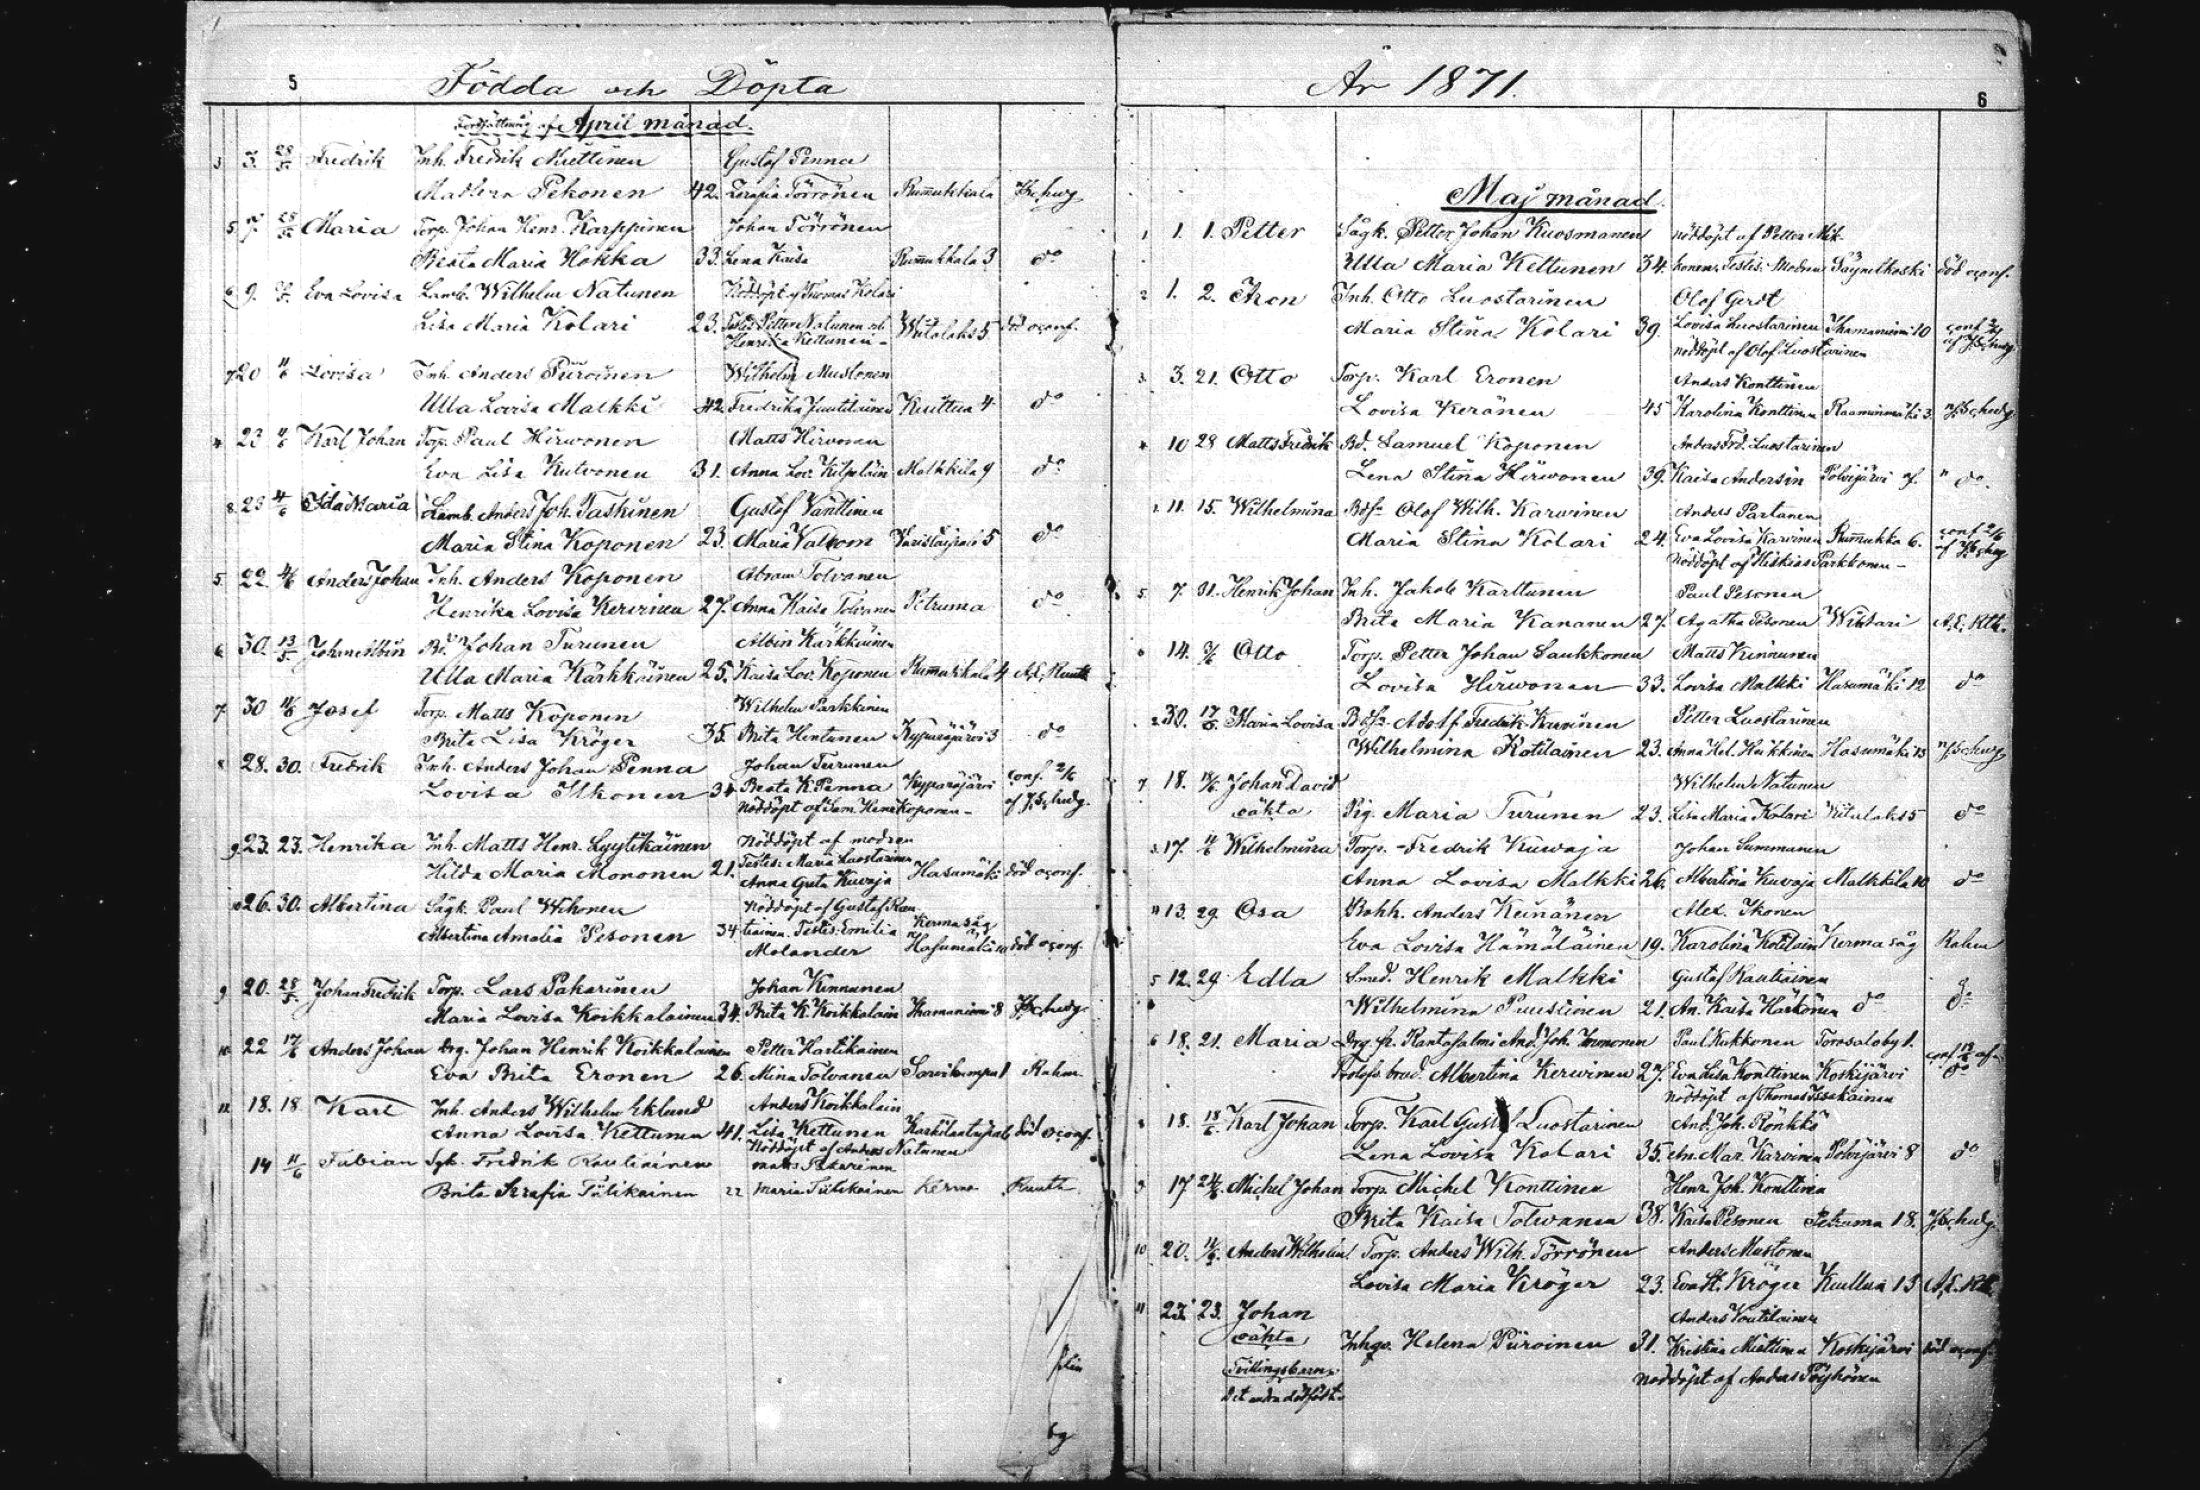 5 Födda och Döpta
Fortsättning af April månad.
3 3. 28/5 Fredrik Inh. Fredrik Miettinen Gustaf Penna
Madlena Pekonen 42. Serafia Törrönen Rummukkala
5 7. 28/5 Maria Torp. Johan Henr. Karppinen Johan Törrönen
Beata Maria Hokka 33. Lena Kaisa Rummukkala 3 do
6 9. Eva Lovisa Lamb. Wilhelm Natunen Nöddöpt af Thomas Kolari
Lisa Maria Kolari 23. Testes Petter Natunen och Henrika Kettunen Witalaks 5 död oconf.
7 20 Lovisa Inh. Anders Piiroinen Wilhelm Mustonen
Ulla Lovisa Malkki 42. Fredrika Juutilainen 4 do
4 23 Karl Johan Torp. Paul Hirvonen Matts Hirvonen
Eva Lisa Kutvonen 31. Anna Lov. Kilpeläin Malkkila 9 do
8 23 4/6 Ida Maria Lamb. Anders Joh. Taskinen Gustaf Vänttinen
Maria Stina Koponen 23. Maria 5 do
5. 22. 4/6 Anders Johan Inh. Anders Koponen Abram Tolvanen
Henrika Lovisa Kervinen 27. Anna Kaisa Tolvanen Petruma do
6 30. 13/5 Johan Albin Bd. Johan Turunen Albin Kärkkäinen
Ulla Maria Kärkkäinen 25. Kaisa Lov. Koponen Rummukkala 4
7. 30 11/6 Josef Torp. Matts Koponen Wilhelm Parkkinen
Brita Lisa Kröger 35. Brita Hentunen Kypäräjärvi 3 do
8 28. 30. Fredrik Inh. Anders Johan Penna Johan Turunen
Lovisa Ikonen 34 Beata K. Penna Kypäräjärvi conf. 2/6
Nöddöpt af Sam. Henr. Koponen
9. 23. 23. Henrika Inh. Matts Henr. Lyytikäinen Nöddöpt af modren
Hilda Maria Mononen 21. Testes: Maria Luostarinen Anna Greta Kuvaja Hasumäki död oconf.
10 26. 30. Albertina Sågk. Paul Wihonen Nöddöpt af Gustaf Rau-
Albertina Amalia Pesonen 34 tiainen. Testis: Emilia Molander Kermasåg Hasumäki död oconf.
9 20. 28/5 Johan Fredrik Torp. Lars Pakarinen Johan Kinnunen
Maria Lovisa Koikkalainen 34. Brita K. Koikkalain 8
10 22 17/6 Anders Johan Drg. Johan Henrik Koikkalainen Petter Hartikainen
Eva Brita Eronen 26. Mina Tolvanen Sarvikumpu 1 Rahm
11 18. 18 Karl Inh. Anders Wilhelm Eklund Anders Koikkalain
Anna Lovisa Kettunen 41. Lisa Kettunen död oconf.
Nöddöpt af Anders Natunen
14 11/6 Fabian Fredrik Rautiainen Matts Pakarinen
Brita Serafia Tiilikainen 22 Maria Tiilikainen Kerma
År 1871. 6
Maj månad.
1 1. 1. Petter Sågk. Petter Johan Kuosmanen nöddöpt af Petter Mik-
Ulla Maria Kettunen 34. konen. Testis: Modren död oconf.
2 1. 2. Aron Inh. Otto Luostarinen Olof Gerdt
Maria Stina Kolari 39. Lovisa Luostarinen 10
nöddöpt af Olof Luostarinen
3. 3. 21. Otto Torp. Karl Eronen Anders Konttinen
Lovisa Keränen 45 Karolina Konttinen 3
4 10 28 Matts Fredrik Bd. Samuel Koponen Anders Frd. Luostarinen
Lena Stina Hirvonen 39. Kaisa Andersin Polvijärvi do
11. 15. Wilhelmina Olof Wilh. Karvinen Anders Partanen
Maria Stina Kolari 24. Eva Lovisa Karvinen Rummukka 6. conf 2/6
Nöddöpt af Hiskias Parkkonen
5. 7. 31. Henrik Johan Inh. Jakob Karttunen Paul Pesonen
Brita Maria Kananen 27. Agatha Pesonen Wiktari
6 14. Otto Torp. Petter Johan Laukkonen Matts Kinnunen
Lovisa Hirvonen 33. Lovisa Malkki Hasumäki 12 do
2 30. Maria Lovisa Adolf Fredrik Karvinen Petter Luostarinen
Wilhelmina Kotilainen 23. Anna Hel. Hasumäki 13
7 18. 18/6 Johan David Wilhelm Natunen
oäkta Pig. Maria Turunen 23. Lisa Maria Kolari Witalaks 5 do
3. 17. 4/6 Wilhelmina Torp. Fredrik Kuvaja Johan Summanen
Anna Lovisa Malkki 26. Albertina Kuvaja Malkkila 10 do
4 13. 29. Osa Bokh. Anders Keinänen Alex. Ikonen
Eva Lovisa Hämäläinen 19. Karolina Kotilain Kerma såg Rahm
5 12. 29 Edla Smed. Henrik Malkki Gustaf Rautiainen
Wilhelmina Puustinen 21. An. Kaisa Härkönen do do
6 18. 21. Maria Drg. fr. Rantasalmi And. Joh. Immonen Paul Kukkonen Torasaloby 1.
Albertina Kervinen 27. Eva Lisa Konttinen Koskijärvi do
Nöddöpt af Thomas Issakainen
18. 18/6 Karl Johan Torp. Karl Gustaf Luostarinen And. Joh. Rönkkö
Lena Lovisa Kolari 35. An. Mar. Karvinen Polvijärvi 8 do
9 17 Michel Johan Torp. Michel Konttinen Henr. Joh. Konttinen
Brita Kaisa Tolvanen 38. Kaisa Pesonen Petruma 18.
10 20. 11/6 Anders Wilhelm Torp. Anders Wilh. Törrönen Anders Mustonen
Lovisa Maria Kröger 23. Eva St. Kröger 13
11 23. 23. Johan Anders Voutilainen
oäkta Inhgs. Helena Piiroinen 31. Kristina Miettinen Koskijärvi död oconf.
Tvillingsbarn. nöddöpt af Anders Pöyhönen
Det andra dödfödt